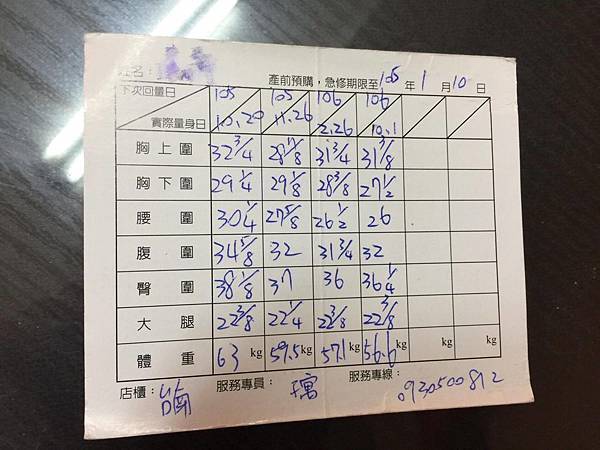 姓名：
產前預購，急修期限至105年1月10日
下次回量日 105 105 106 106
實際量身日 10.20 11.26 2.26 10.1
胸上圍 32 3/4 28 7/8 31 3/4 31 3/8
胸下圍 29 1/4 29 1/8 28 3/8 27 1/2
腰圍 30 1/4 27 5/8 26 1/2 26
腹圍 34 5/8 32 31 3/4 32
臀圍 38 1/8 37 36 36 1/4
大腿 22 3/8 22 1/4 22 3/8 22 3/8
體重 63 kg 59.5 kg 57.1 kg 56.6 kg kg kg
店櫃： 服務專員： 服務專線： 0930500812